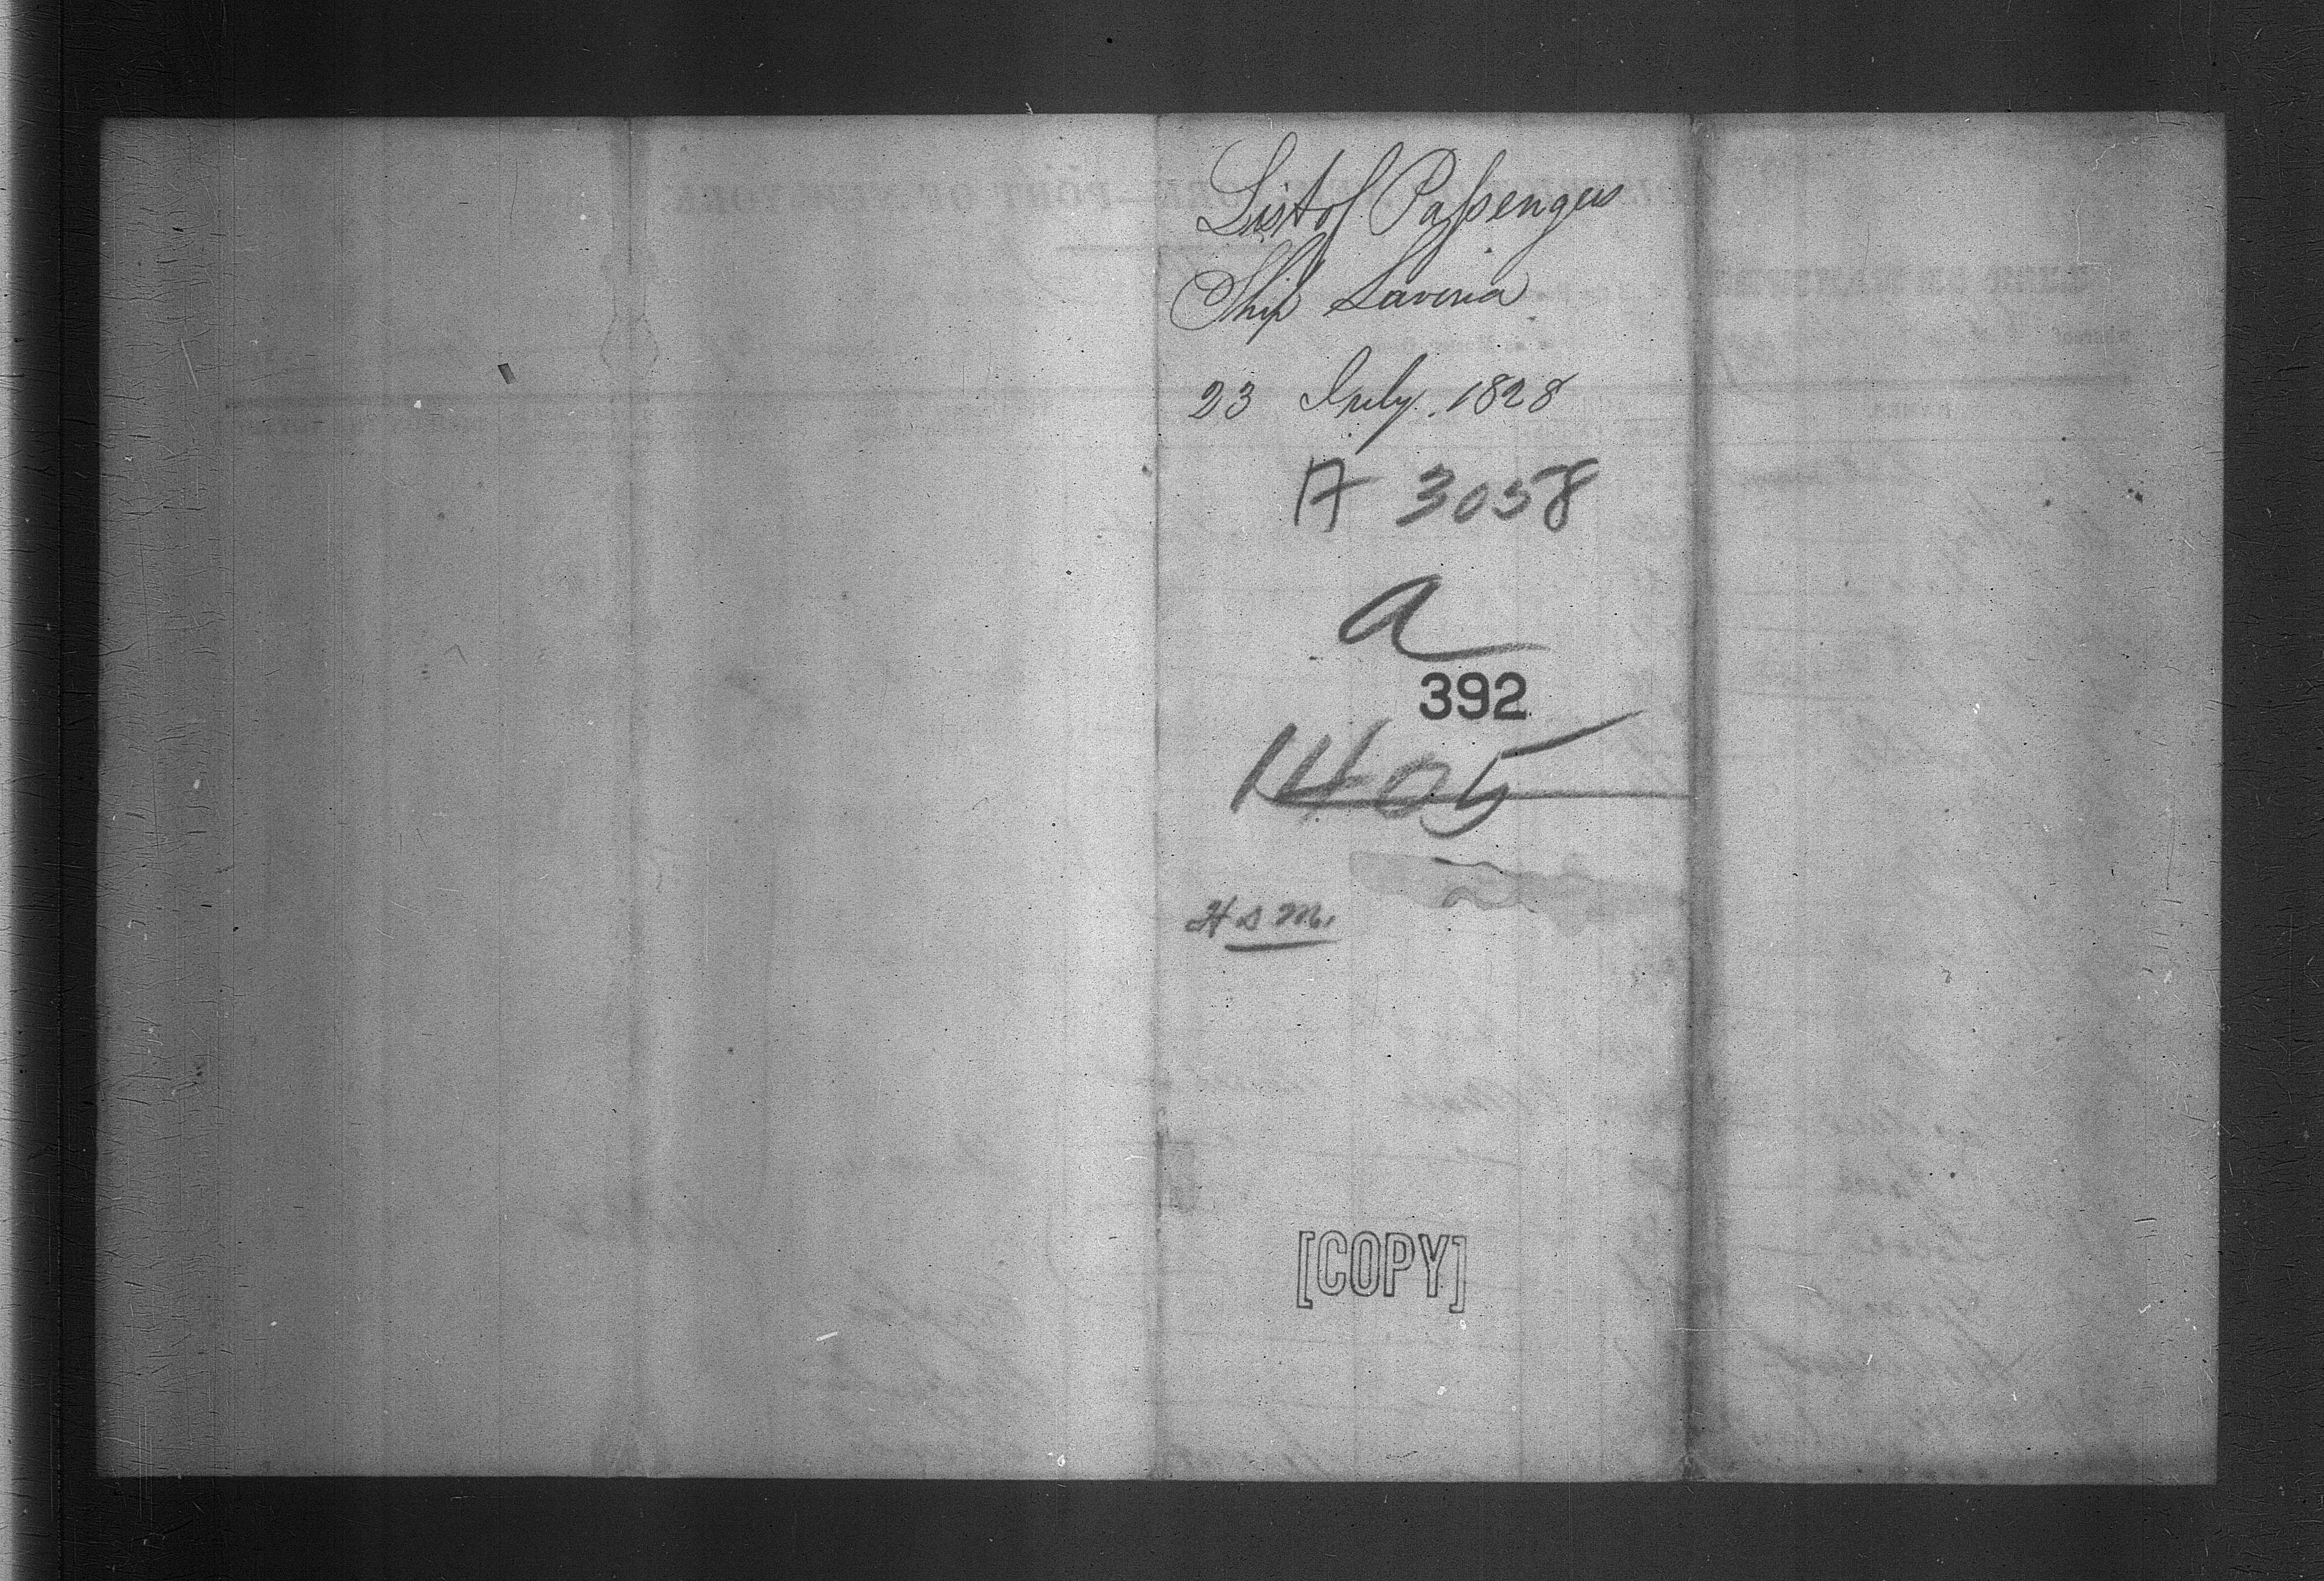 List of Passengers
Ship Lavinia
23 July. 1828
A 3058
a
392
1405
H S M.
[COPY]